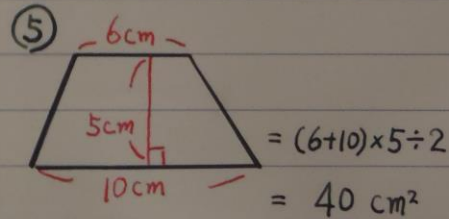 ⑤
6cm
5cm
10cm
= (6+10)×5÷2
= 40 cm²